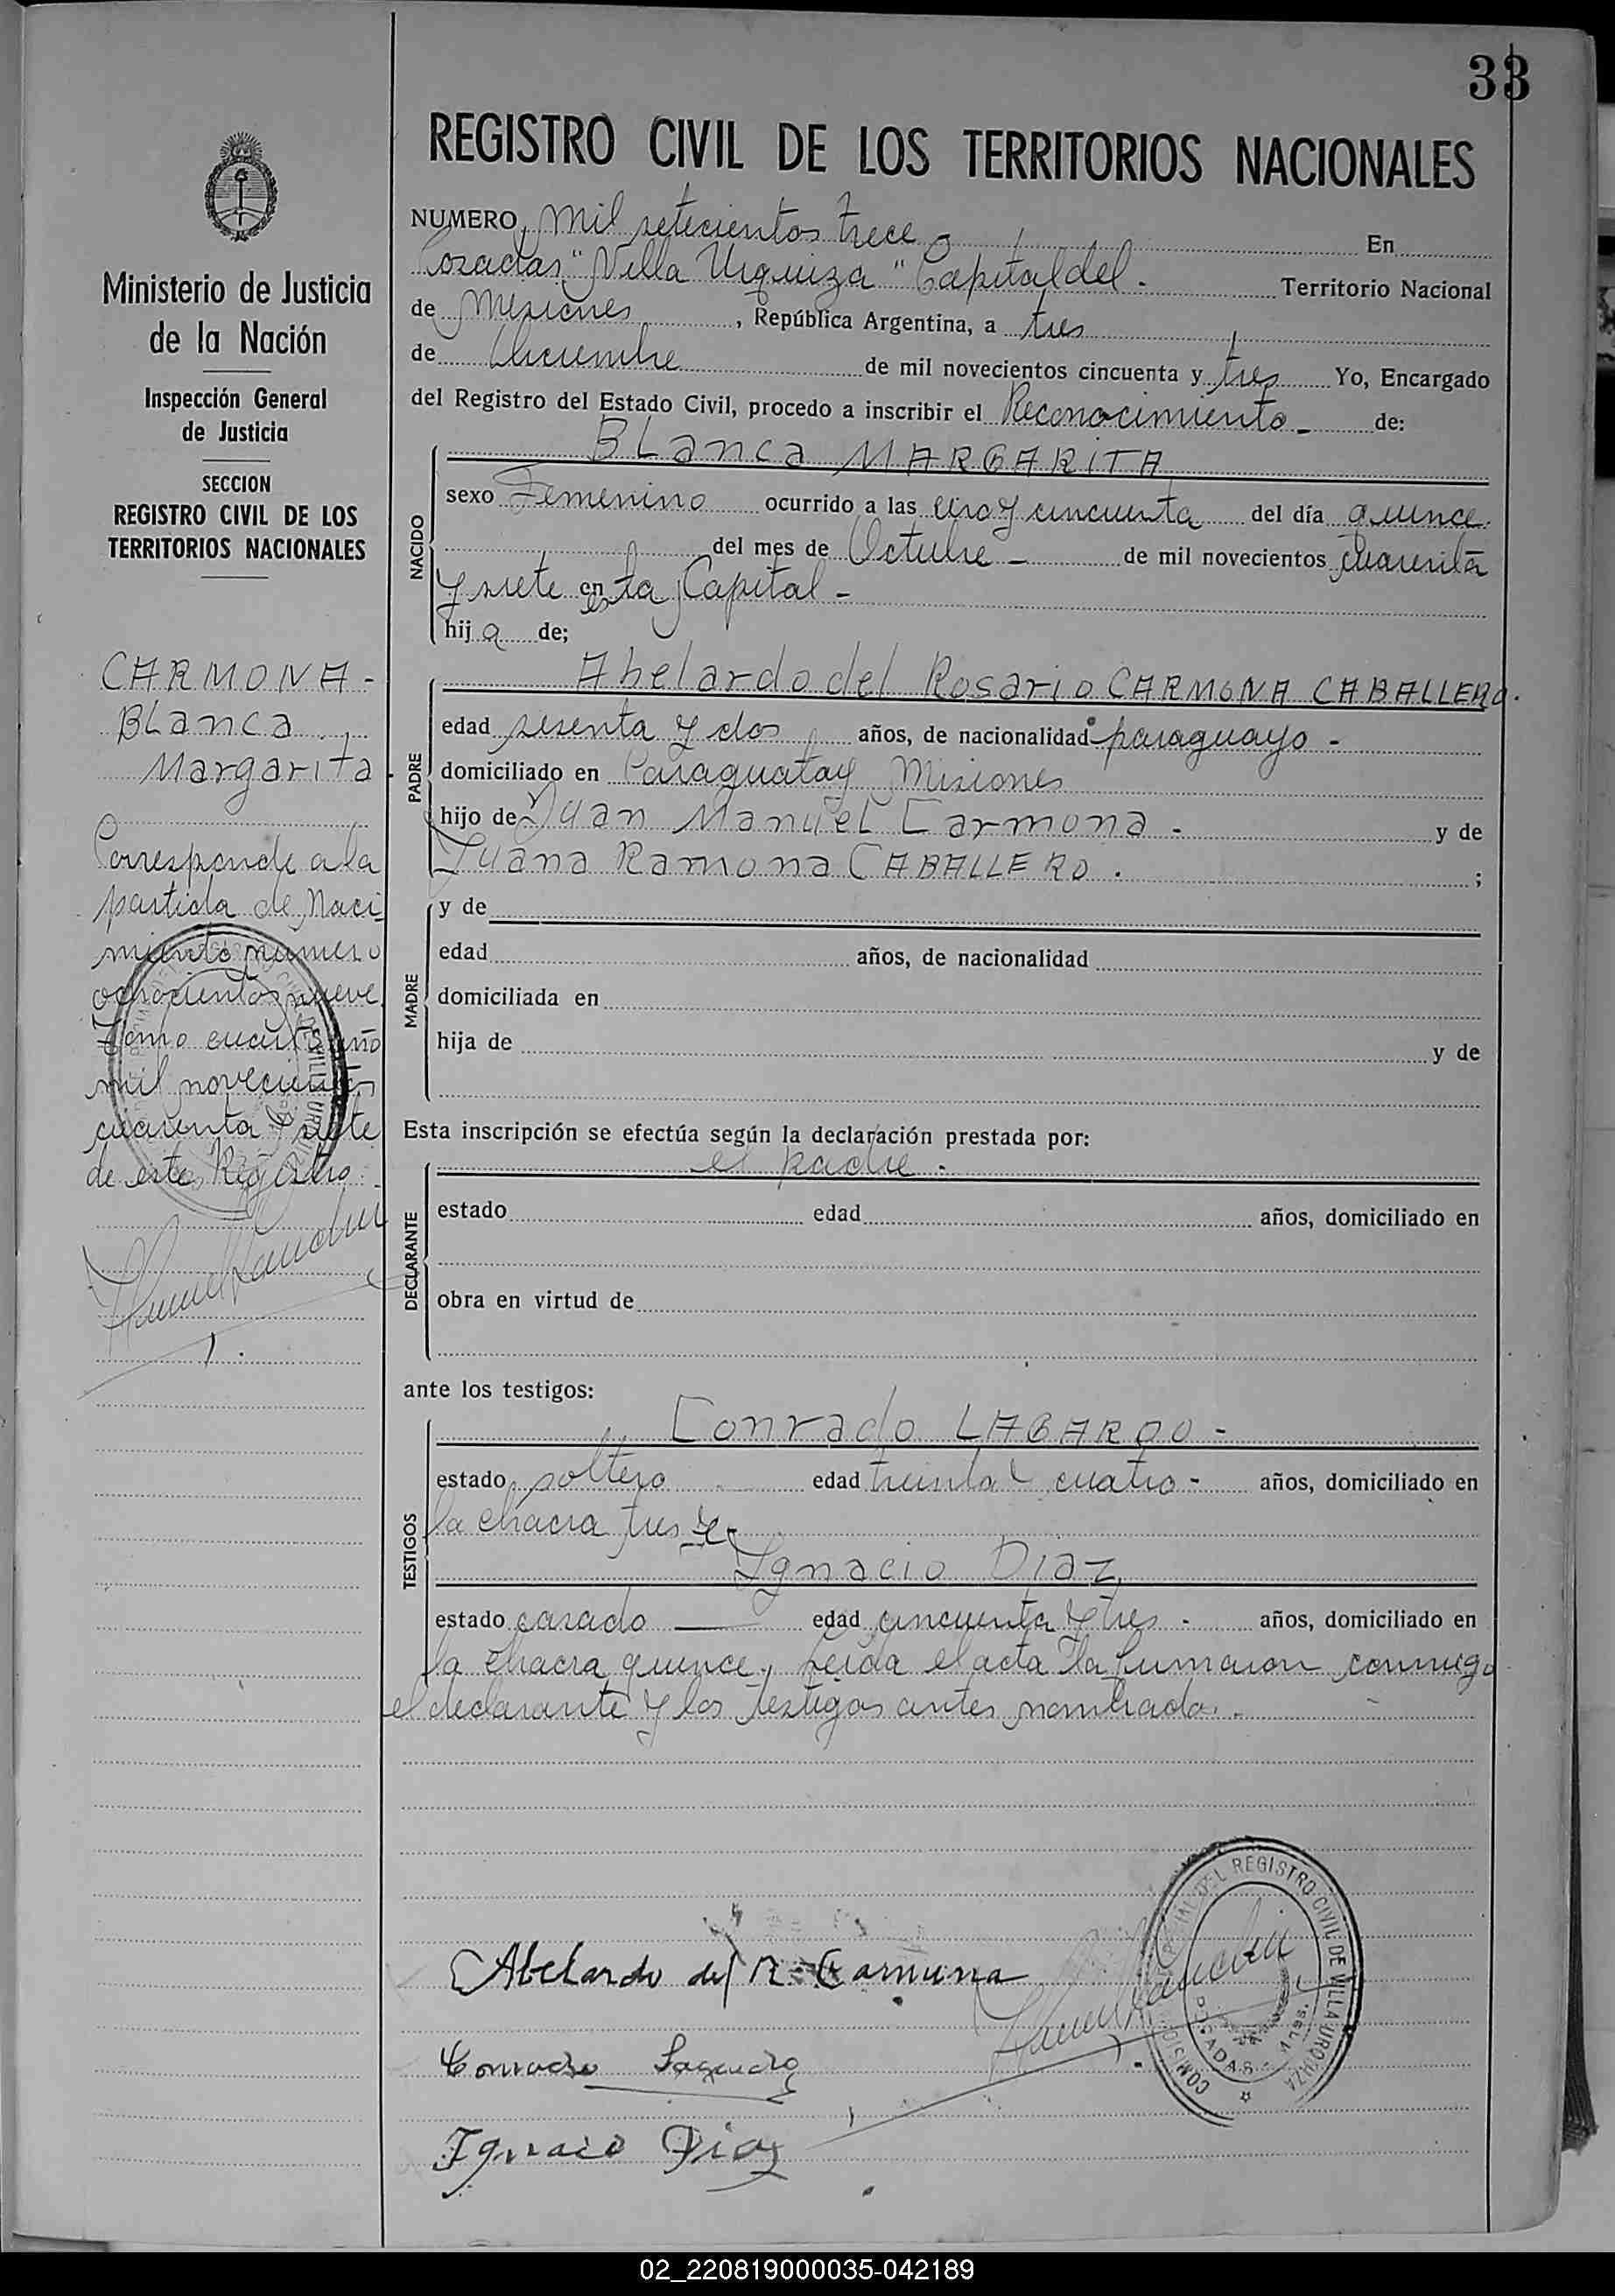 33
REGISTRO CIVIL DE LOS TERRITORIOS NACIONALES
Ministerio de Justicia
de la Nación
Inspección General
de Justicia
SECCION
REGISTRO CIVIL DE LOS
TERRITORIOS NACIONALES
CARMONA -
Blanca
Margarita.
Corresponde a la
partida de Naci
miento numero
ochocientos nueve
Tomo año
mil novecientos
cuarenta y siete
de este Registro.
NUMERO, Mil setecientos trece - En
Posadas "Villa Urquiza" Capital del. Territorio Nacional
de Misiones, República Argentina, a tres
de Diciembre de mil novecientos cincuenta y tres Yo, Encargado
del Registro del Estado Civil, procedo a inscribir el Reconocimiento - de:
NACIDO
BLanca MARGARITA
sexo Femenino ocurrido a las una y cincuenta del día quince
del mes de Octubre - de mil novecientos cuarenta
y siete en esta Capital -
hija de;
PADRE
Abelardo del Rosario CARMONA CABALLERO.
edad sesenta y dos años, de nacionalidad paraguayo -
domiciliado en Caraguatay Misiones
hijo de Juan Manuel Carmona - y de
Juana Ramona CABALLERO. ;
MADRE
y de
edad años, de nacionalidad
domiciliada en
hija de y de
Esta inscripción se efectúa según la declaración prestada por:
DECLARANTE
el padre -
estado edad años, domiciliado en
obra en virtud de
ante los testigos:
TESTIGOS
Conrado -
estado soltero edad treinta y cuatro - años, domiciliado en
la chacra tres y -
Ignacio Diaz
estado casado edad cincuenta y tres - años, domiciliado en
la chacra quince, Leida el acta la firmaron conmigo
el declarante y los testigos antes nombrados.-
Abelardo del R. Carmona
Conrado
Ignacio Diaz
DEL REGISTRO CIVIL DE VILLA URQUIZA
POSADAS - Mnes.
02_220819000035-042189